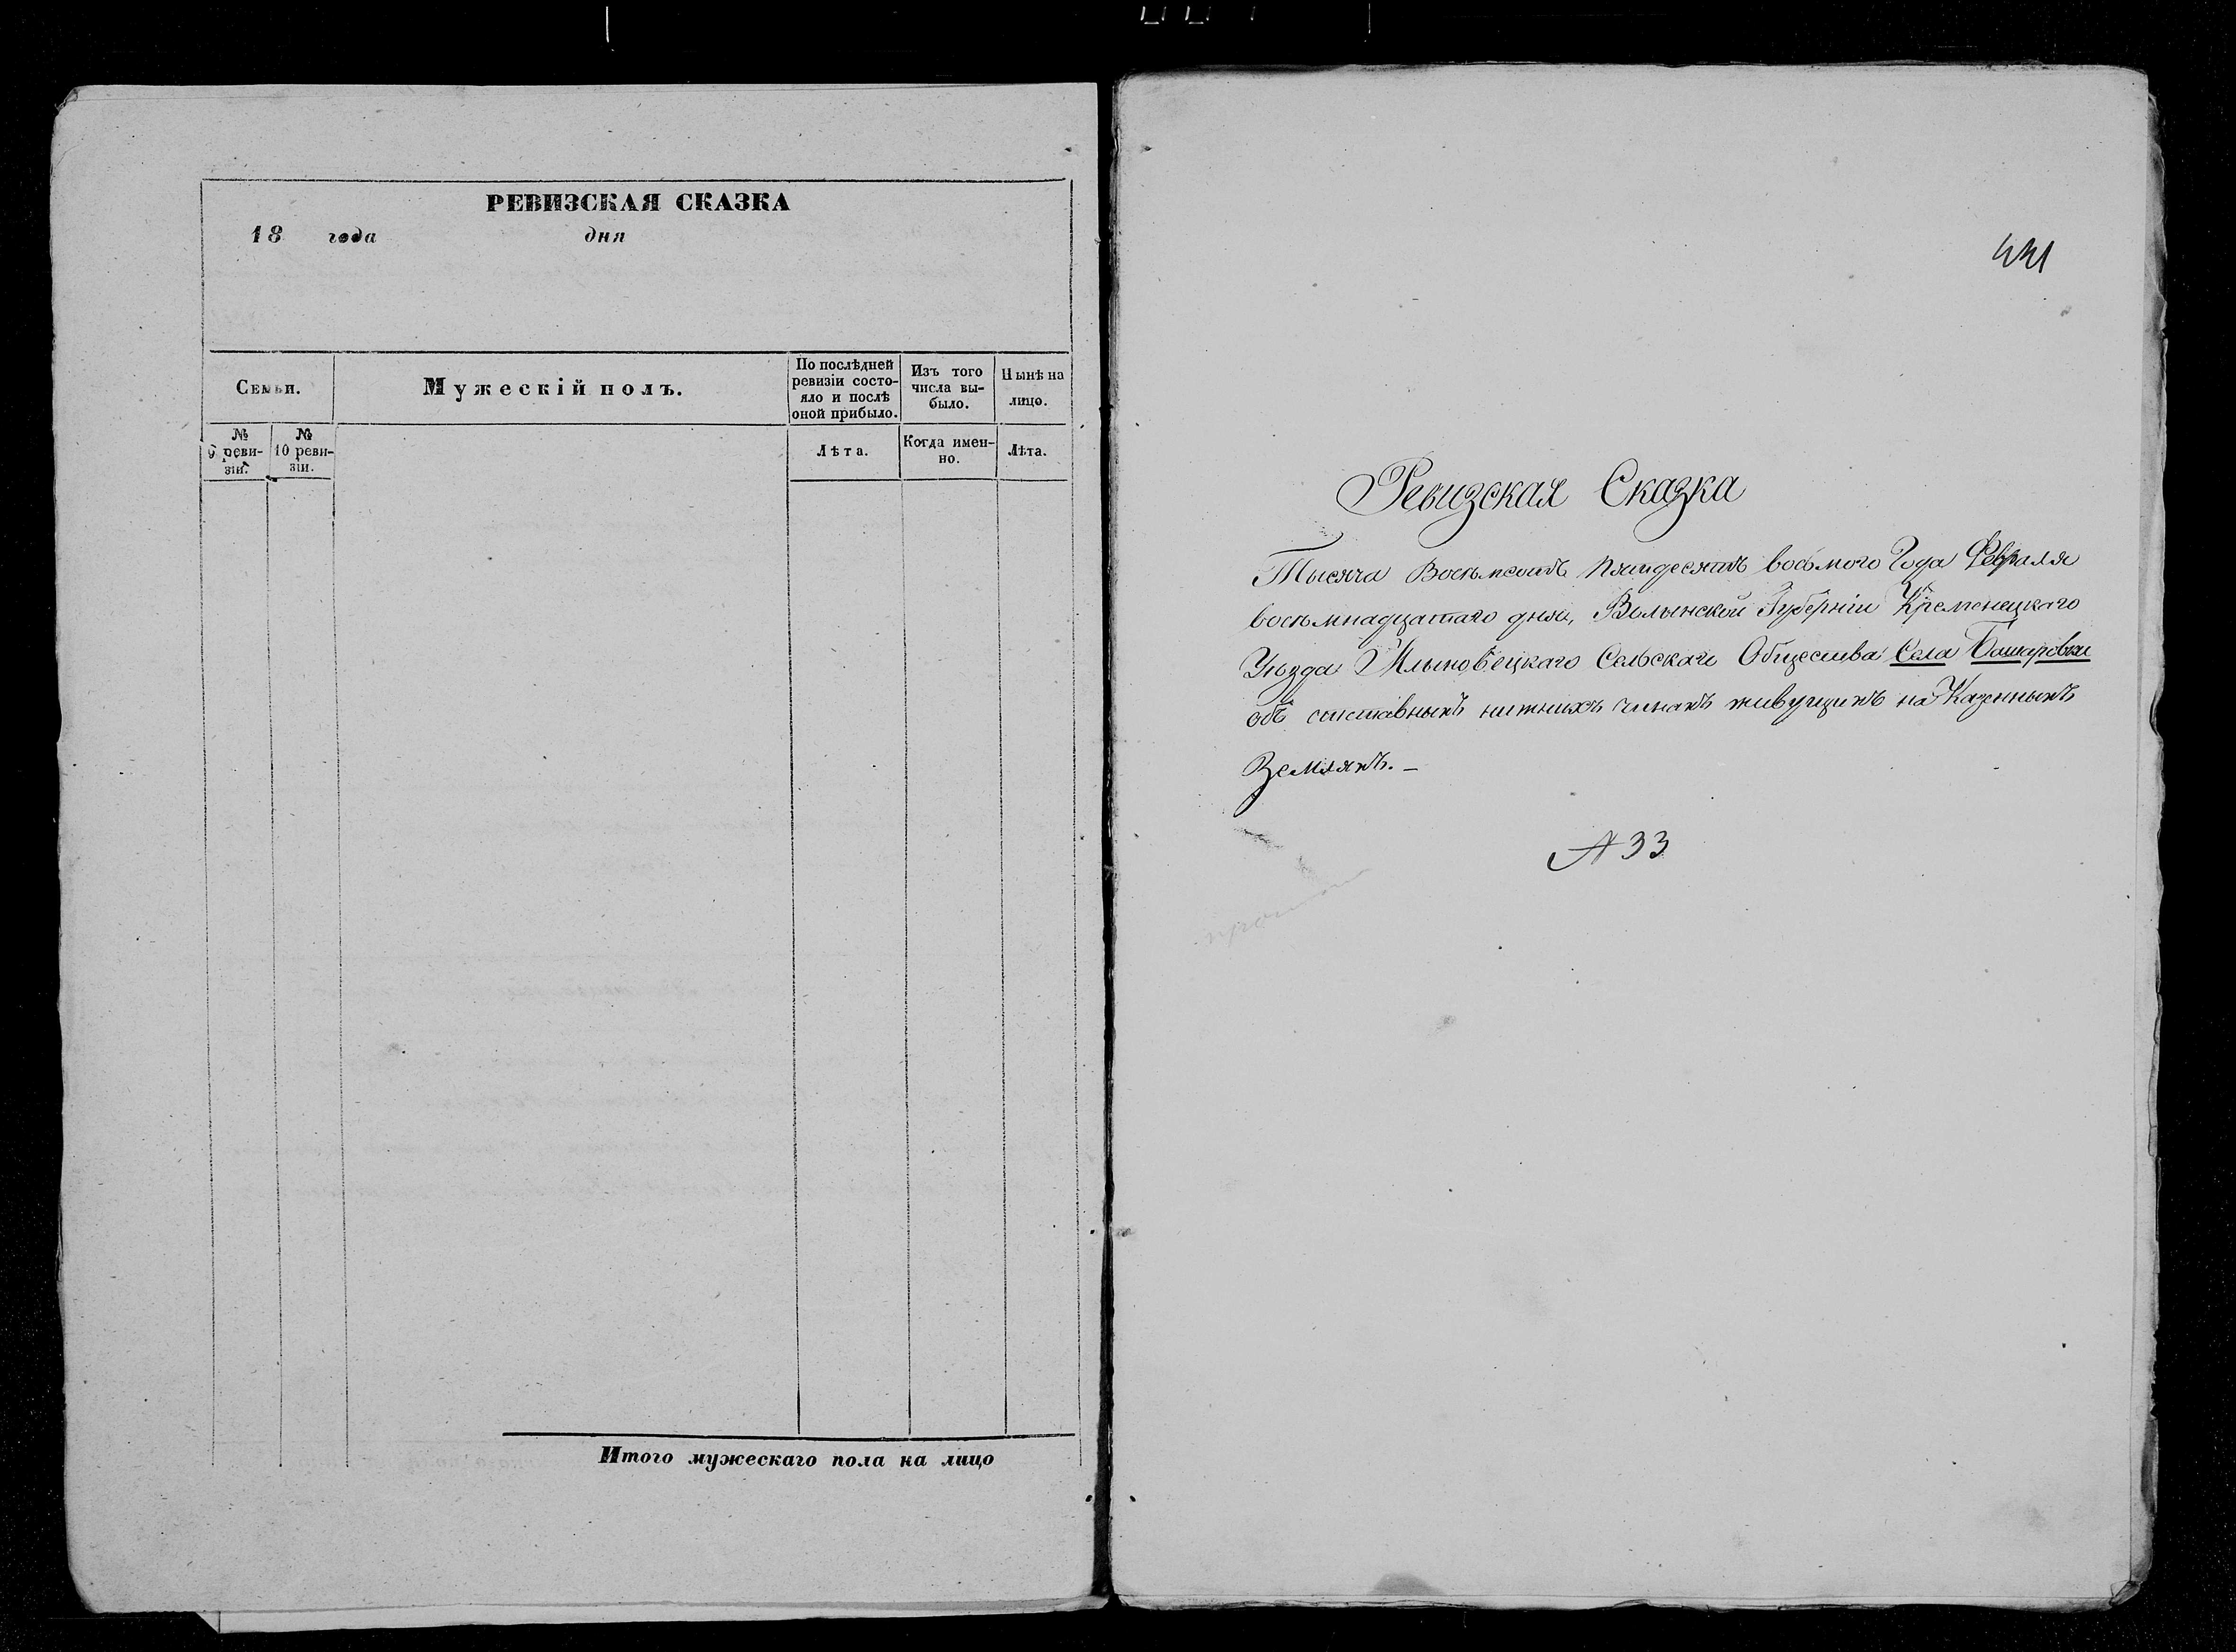 РЕВИЗСКАЯ СКАЗКА
18 года дня
Семьи.
Мужескій полъ.
По послѣдней ревизіи состо-
яло и послѣ
оной прибыло.
Изъ того
числа вы-
было.
Нынѣ на
лицо.
№
9 реви-
зіи.
№
10 реви-
зіи.
Лѣта.
Когда имен-
но.
Лѣта.
Итого мужескаго пола на лицо
441
Ревизская Сказка
Тысяча Восьмсотъ Пятдесятъ восьмого Года Февраля
восьмнадцатаго дня, Волынской Губерніи Кременецкаго
Уѣзда Млыновецкаго Сельскаго Общества Села Башаровки
объ отставныхъ нижнихъ чинахъ живущихъ на Казенныхъ
Земляхъ. –
№ 33